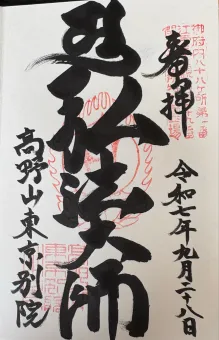 奉拝
令和七年九月二十八日
弘法大師
高野山東京別院
御府内八十八ヶ所第一番